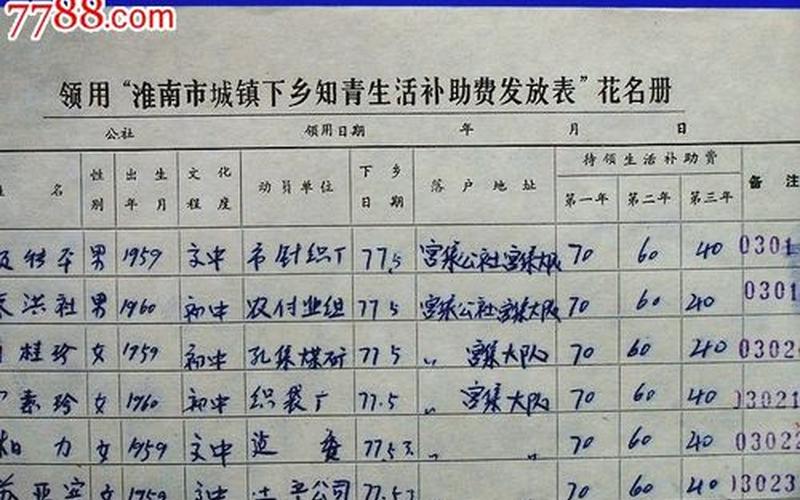 7788.com
领用“淮南市城镇下乡知青生活补助费发放表”花名册
公社 领用日期 年 月 日
名 性别 出生年月 文化程度 动员单位 下乡日期 落户地址 待领生活补助费 备注
第一年 第二年 第三年
男 1959 市针织厂 77.5 宫集公社宫集大队 70 60 40 0301
洪社 男 1960 初中 农付业组 77 5 宫集公社宫集大队 70 60 40 0301
桂珍 女 1959 初中 孔集煤矿 77 5 〃 宫集大队 70 60 40 0302
素珍 女 1960 初中 织袋厂 77.5 〃 宫集大队 70 60 40 03021
力 女 1959 77.5 〃 〃 70 60 40 03022
女 1959 公司 77.5 70 60 40 03023